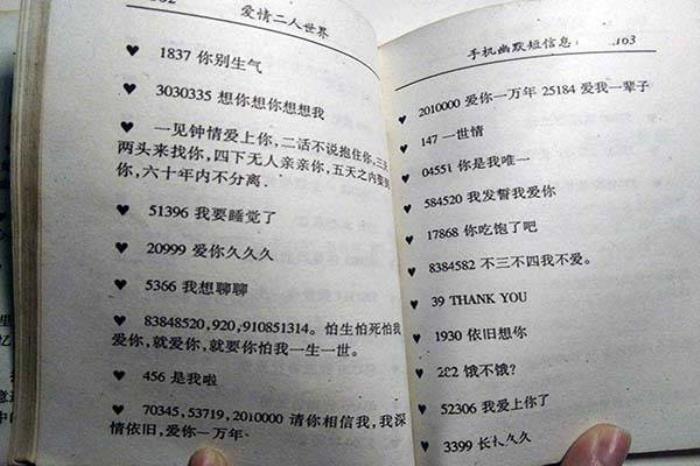 爱情二人世界
♥ 1837 你别生气
♥ 3030335 想你想你想想我
♥ 一见钟情爱上你,二话不说抱住你,三
两头来找你,四下无人亲亲你,五天之内
你,六十年内不分离.
♥ 51396 我要睡觉了
♥ 20999 爱你久久久
♥ 5366 我想聊聊
♥ 83848520,920,910851314。怕生怕死怕我
爱你,就爱你,就要你怕我一生一世。
♥ 456 是我啦
♥ 70345,53719,2010000 请你相信我,我深
情依旧,爱你一万年.
手机幽默短信息 163
♥ 2010000 爱你一万年 25184 爱我一辈子
♥ 147 一世情
♥ 04551 你是我唯一
♥ 584520 我发誓我爱你
♥ 17868 你吃饱了吧
♥ 8384582 不三不四我不爱。
♥ 39 THANK YOU
♥ 1930 依旧想你
♥ 282 饿不饿?
♥ 52306 我爱上你了
♥ 3399 长长久久